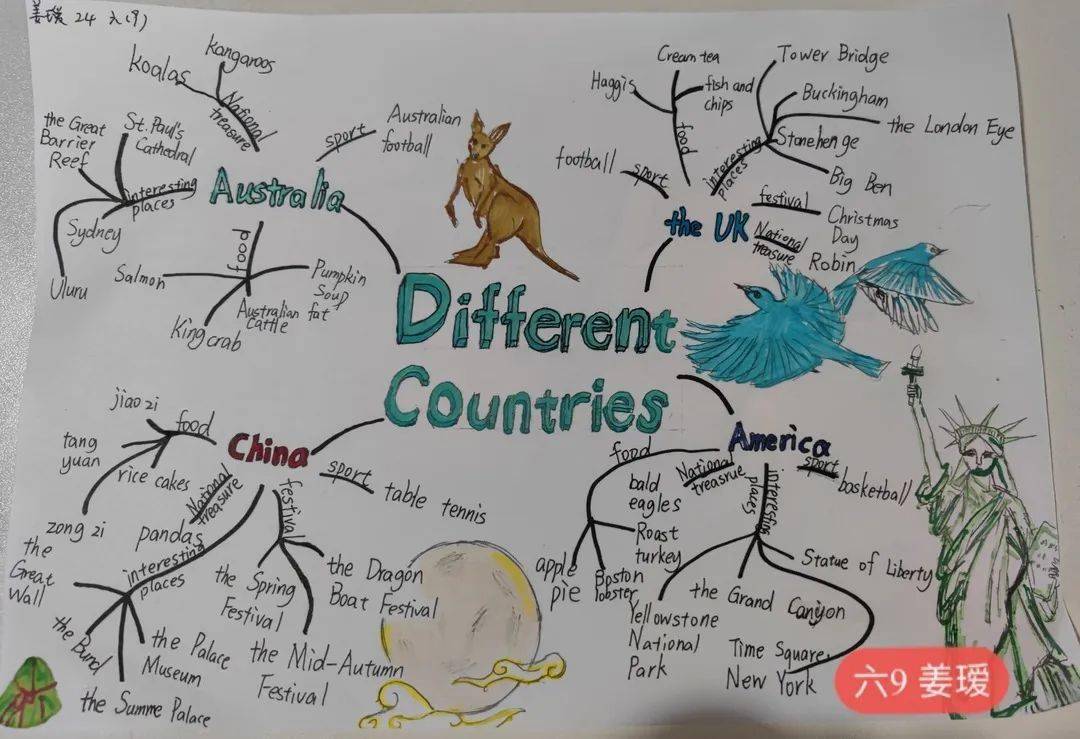 姜瑷 24 六(9)
kangaroos
koalas
National
treasure
the Great
Barrier
Reef
St. Paul's
Cathedral
interesting
places
Sydney
Uluru
Australia
sport
Australian
football
food
Salmon
King crab
Australian fat
Cattle
Pumpkin
Soup
Different
Countries
the UK
Cream tea
Haggis
fish and
chips
food
football
sport
interesting
places
Tower Bridge
Buckingham
the London Eye
Stonehenge
Big Ben
festival
Christmas
Day
National
treasure
Robin
China
jiao zi
food
tang
yuan
rice cakes
zong zi
National
treasure
pandas
interesting
places
the
Great
Wall
the Bund
the Palace
Museum
the Summe Palace
festival
the Spring
Festival
the Dragon
Boat Festival
the Mid-Autumn
Festival
sport
table tennis
America
food
apple
pie
Boston
lobster
Roast
turkey
National
treasrue
bald
eagles
interesting
places
Yellowstone
National
Park
the Grand Canyon
Statue of Liberty
Time Square,
New York
sport
basketball
六9 姜瑷